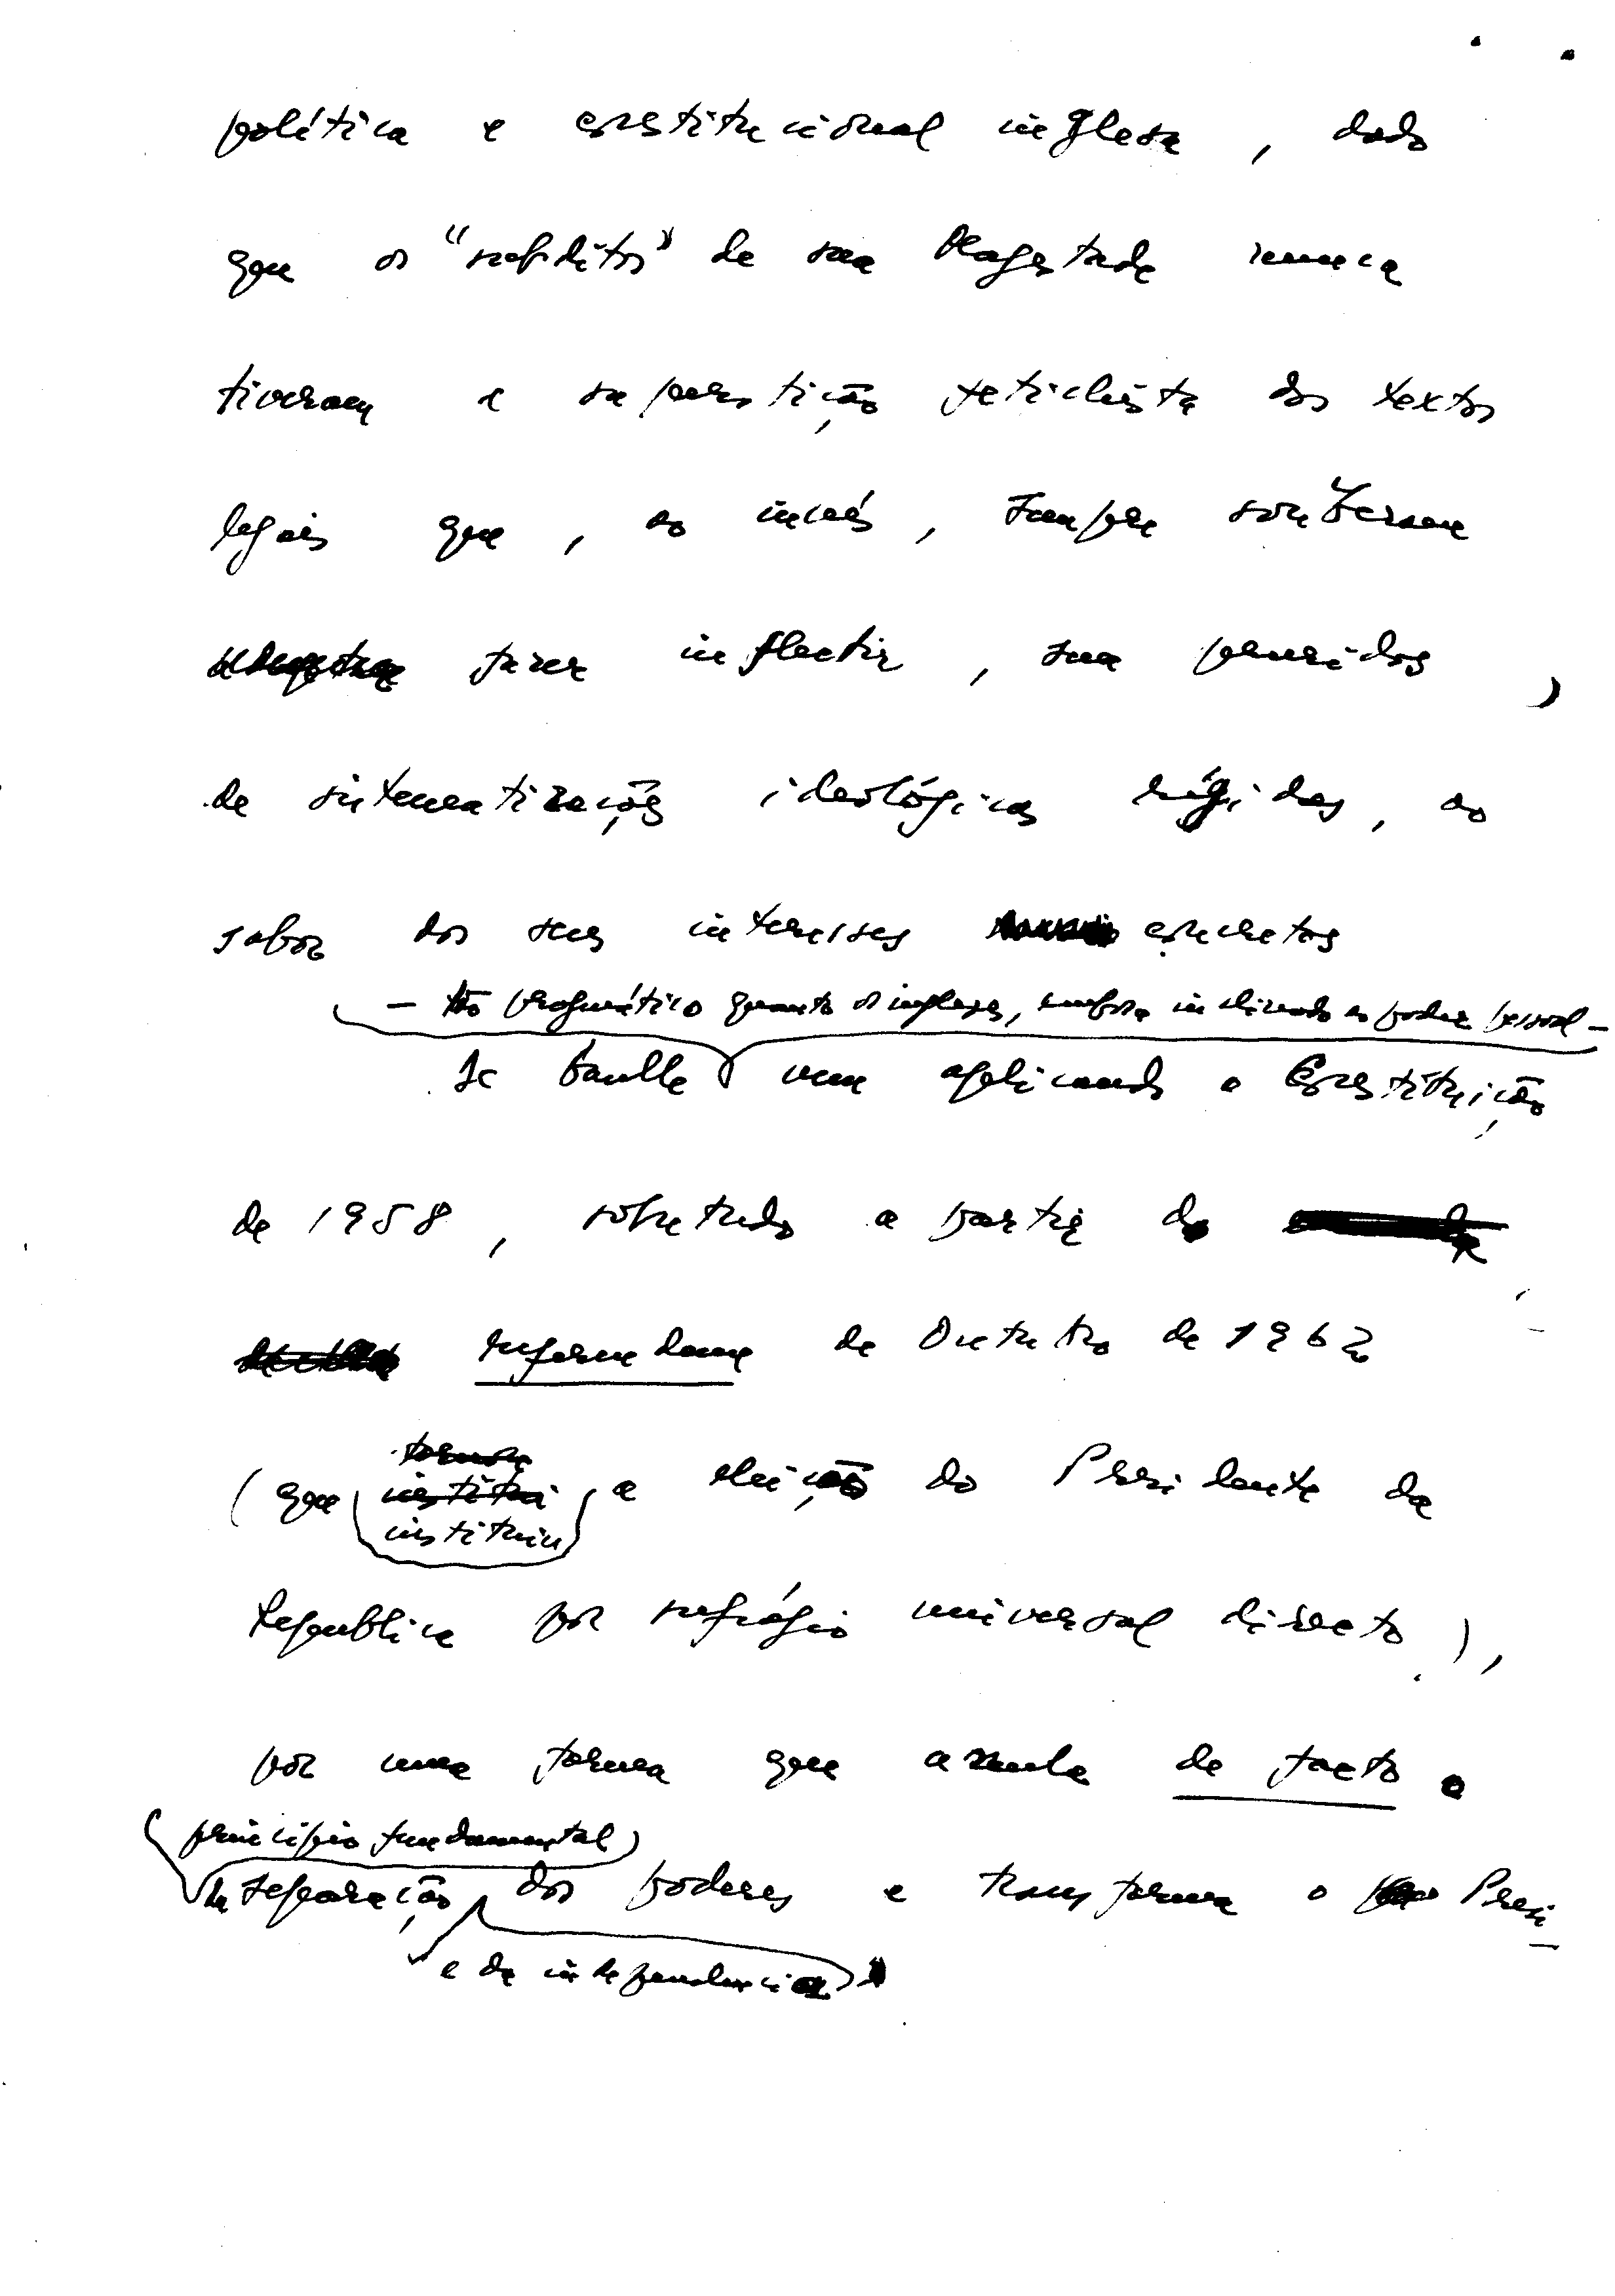 política e constitucional inglesa, dado
que os "subditos" de sua Magestade nunca
tiveram a superstição fetichista dos textos
legais que, ao invés, sempre souberam
fazer inflectir, sem pruridos
de sistematizações ideológicas rígidas, ao
sabor dos seus interesses concretos
— tão pragmático quanto os ingleses, embora inclinado ao poder pessoal —
De Gaulle vem aplicando a Constituição
de 1958, sobretudo a partir do
referendum de Outubro de 1962
(que instituiu a eleição do Presidente da
Republica por sufrágio universal directo),
por uma forma que anula de facto o
princípio fundamental
da separação dos poderes e transforma o Presi-
e da independencia